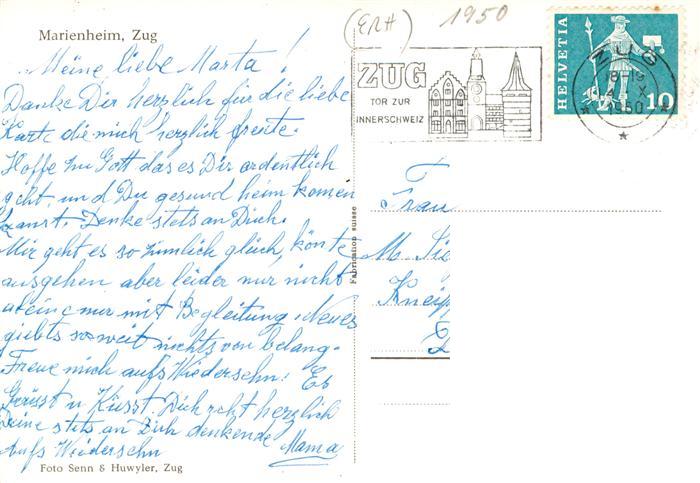 Marienheim, Zug
Meine liebe Marta!
Danke Dir herzlich für die liebe
Karte die mich herzlich freute.
Hoffe zu Gott das es Dir ordentlich
geht, und Du gesund heim komen
kanst. Denke stets an Dich.
Mir geht es so zimlich glüch, könte
ausgehen aber leider nur nicht
aleine nur mit Begleitung. Neues
giebts soweit nichts von belang.
Freue mich aufs Wiedersehn! Es
Grüsst u Küsst Dich recht herzlich
Deine stets an Dich denkende Mama
Aufs Wiedersehn
Foto Senn & Huwyler, Zug
Fabrication suisse
(ERH) 1950
ZUG
TOR ZUR
INNERSCHWEIZ
ZUG
18-19
X
1950
HELVETIA
10
Frau
M. Sie
Kneip